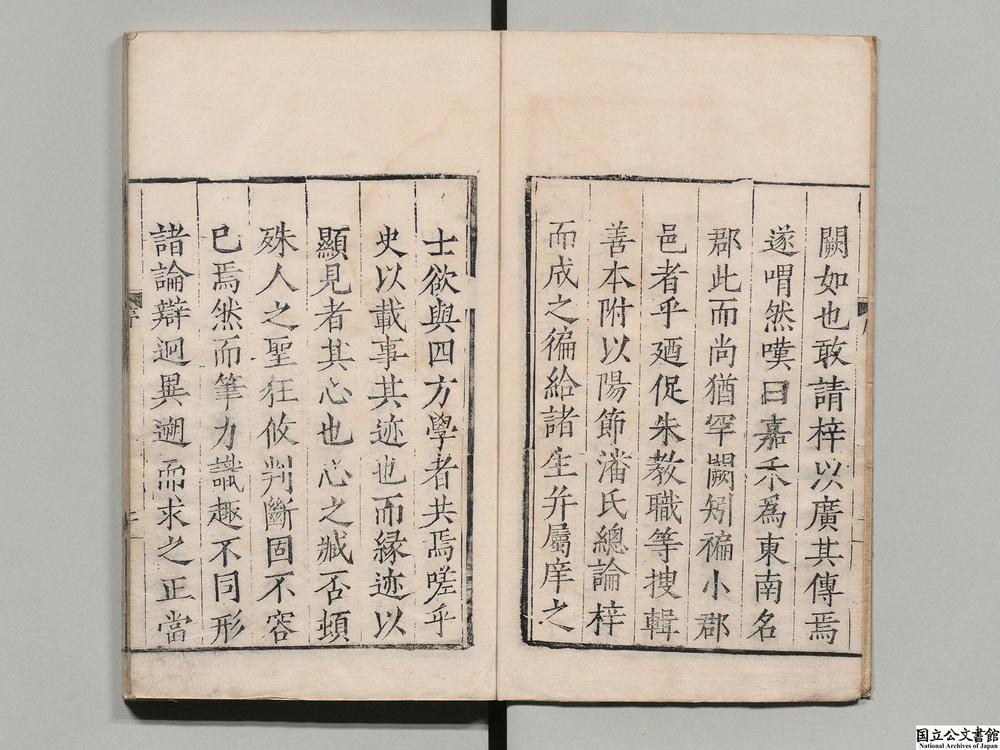 闕如也敢請梓以廣其傳焉
遂喟然嘆曰嘉禾爲東南名
郡此而尚猶罕闕矧褊小郡
邑者乎廼促朱教職等搜輯
善本附以陽節潘氏總論梓
而成之徧給諸生并屬庠之
士欲與四方學者共焉嗟乎
史以載事其迹也而緣迹以
顯見者其心也心之臧否頓
殊人之聖狂攸判斷固不容
已焉然而筆力識趣不同形
諸論辯迥異遡而求之正當
序
国立公文書館
National Archives of Japan